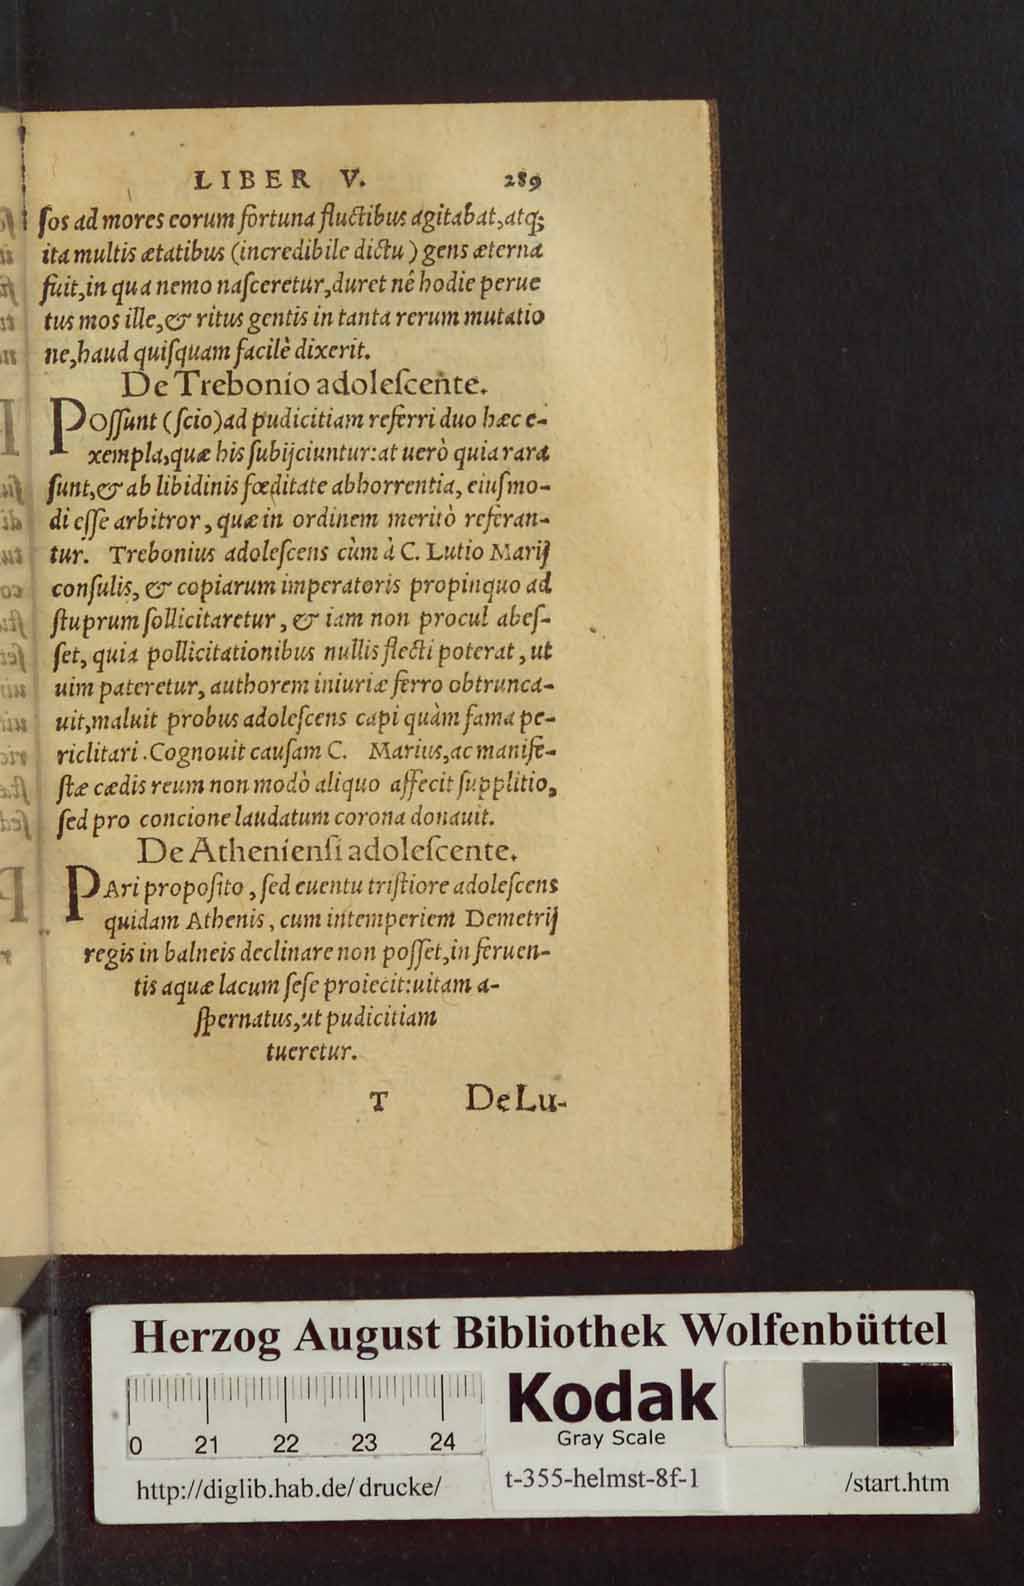 LIBER V. 289
ſos ad mores eorum fortuna fluctibus agitabat,atq;
ita multis ætatibus (incredibile dictu) gens æterna
fuit,in qua nemo naſceretur,duret nê hodie perue
tus mos ille,& ritus gentis in tanta rerum mutatio
ne,haud quiſquam facilè dixerit.
De Trebonio adoleſcente.
POſſunt (ſcio)ad pudicitiam referri duo hæc e-
xempla,quæ his ſubijciuntur:at uerò quia rara
ſunt,& ab libidinis fœditate abhorrentia, eiuſmo-
di eſſe arbitror, quæ in ordinem meritò referan-
tur. Trebonius adoleſcens cùm à C. Lutio Marij
conſulis, & copiarum imperatoris propinquo ad
ſtuprum ſollicitaretur, & iam non procul abeſ-
ſet, quia pollicitationibus nullis flecti poterat, ut
uim pateretur, authorem iniuriæ ferro obtrunca-
uit,maluit probus adoleſcens capi quàm fama pe-
riclitari. Cognouit cauſam C. Marius,ac manife-
ſtæ cædis reum non modò aliquo affecit ſupplitio,
ſed pro concione laudatum corona donauit.
De Athenienſi adoleſcente.
PAri propoſito, ſed euentu triſtiore adoleſcens
quidam Athenis, cum intemperiem Demetrij
regis in balneis declinare non poſſet,in feruen-
tis aquæ lacum ſeſe proiecit:uitam a-
ſpernatus,ut pudicitiam
tueretur.
T De Lu-
Herzog August Bibliothek Wolfenbüttel
Kodak
Gray Scale
0 21 22 23 24
http://diglib.hab.de/drucke/ t-355-helmst-8f-1 /start.htm